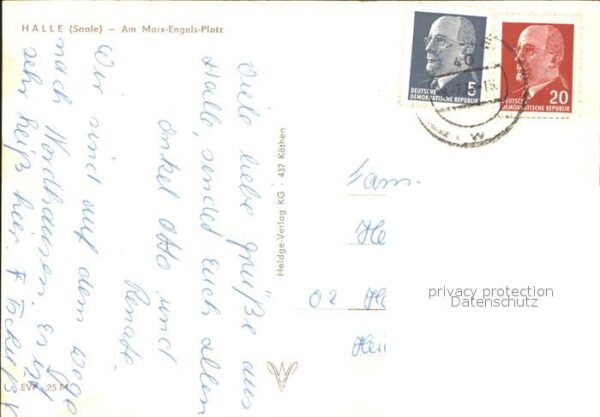 HALLE (Saale) – Am Marx-Engels-Platz
Viele liebe Grüße aus
Halle, sendet Euch allen
Onkel Otto und
Renate.
Wir sind auf dem Wege
nach Nordhausen. Es ist
sehr heiß hier.
EVP -,25 M
Heldge-Verlag KG · 437 Köthen
5
DEUTSCHE
DEMOKRATISCHE REPUBLIK
20
DEUTSCHE
DEMOKRATISCHE REPUBLIK
40
Fam.
He
02 H
privacy protection
Datenschutz